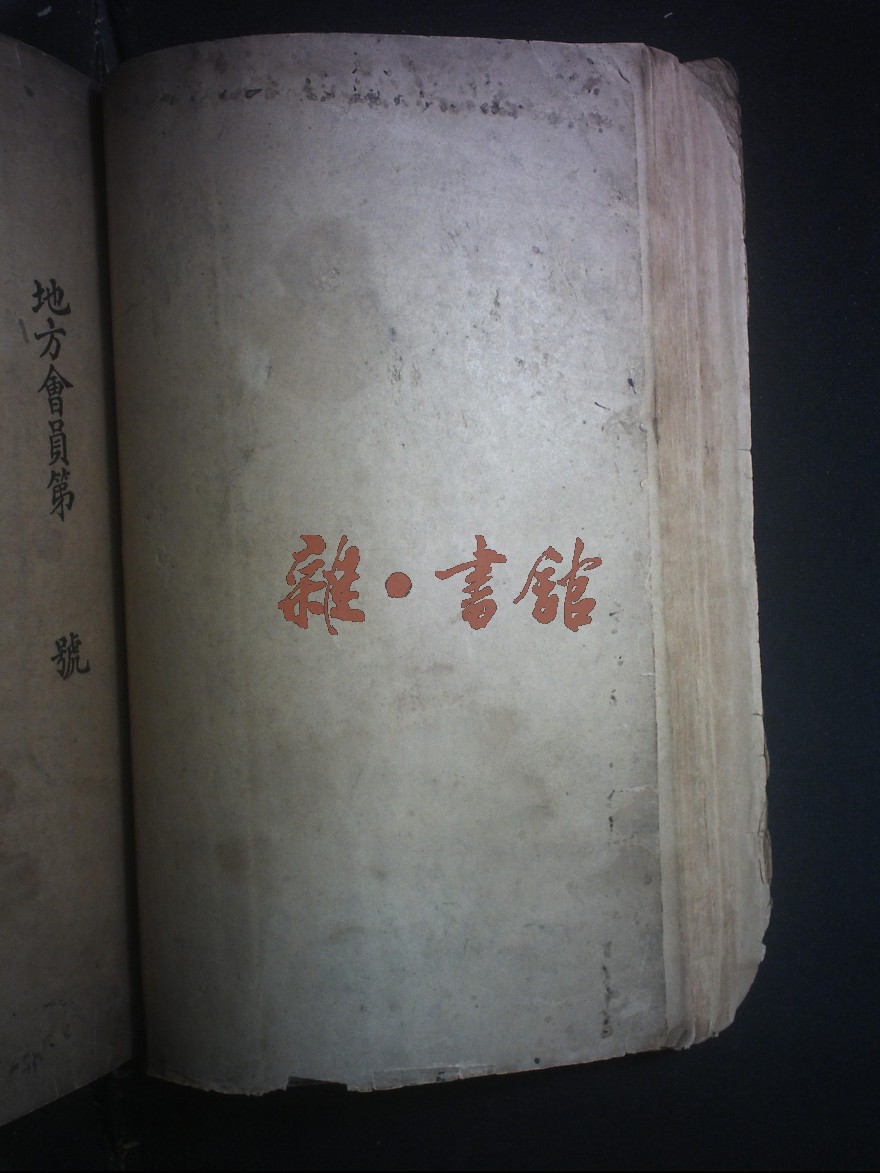 地方會員第　　號
雜·書館